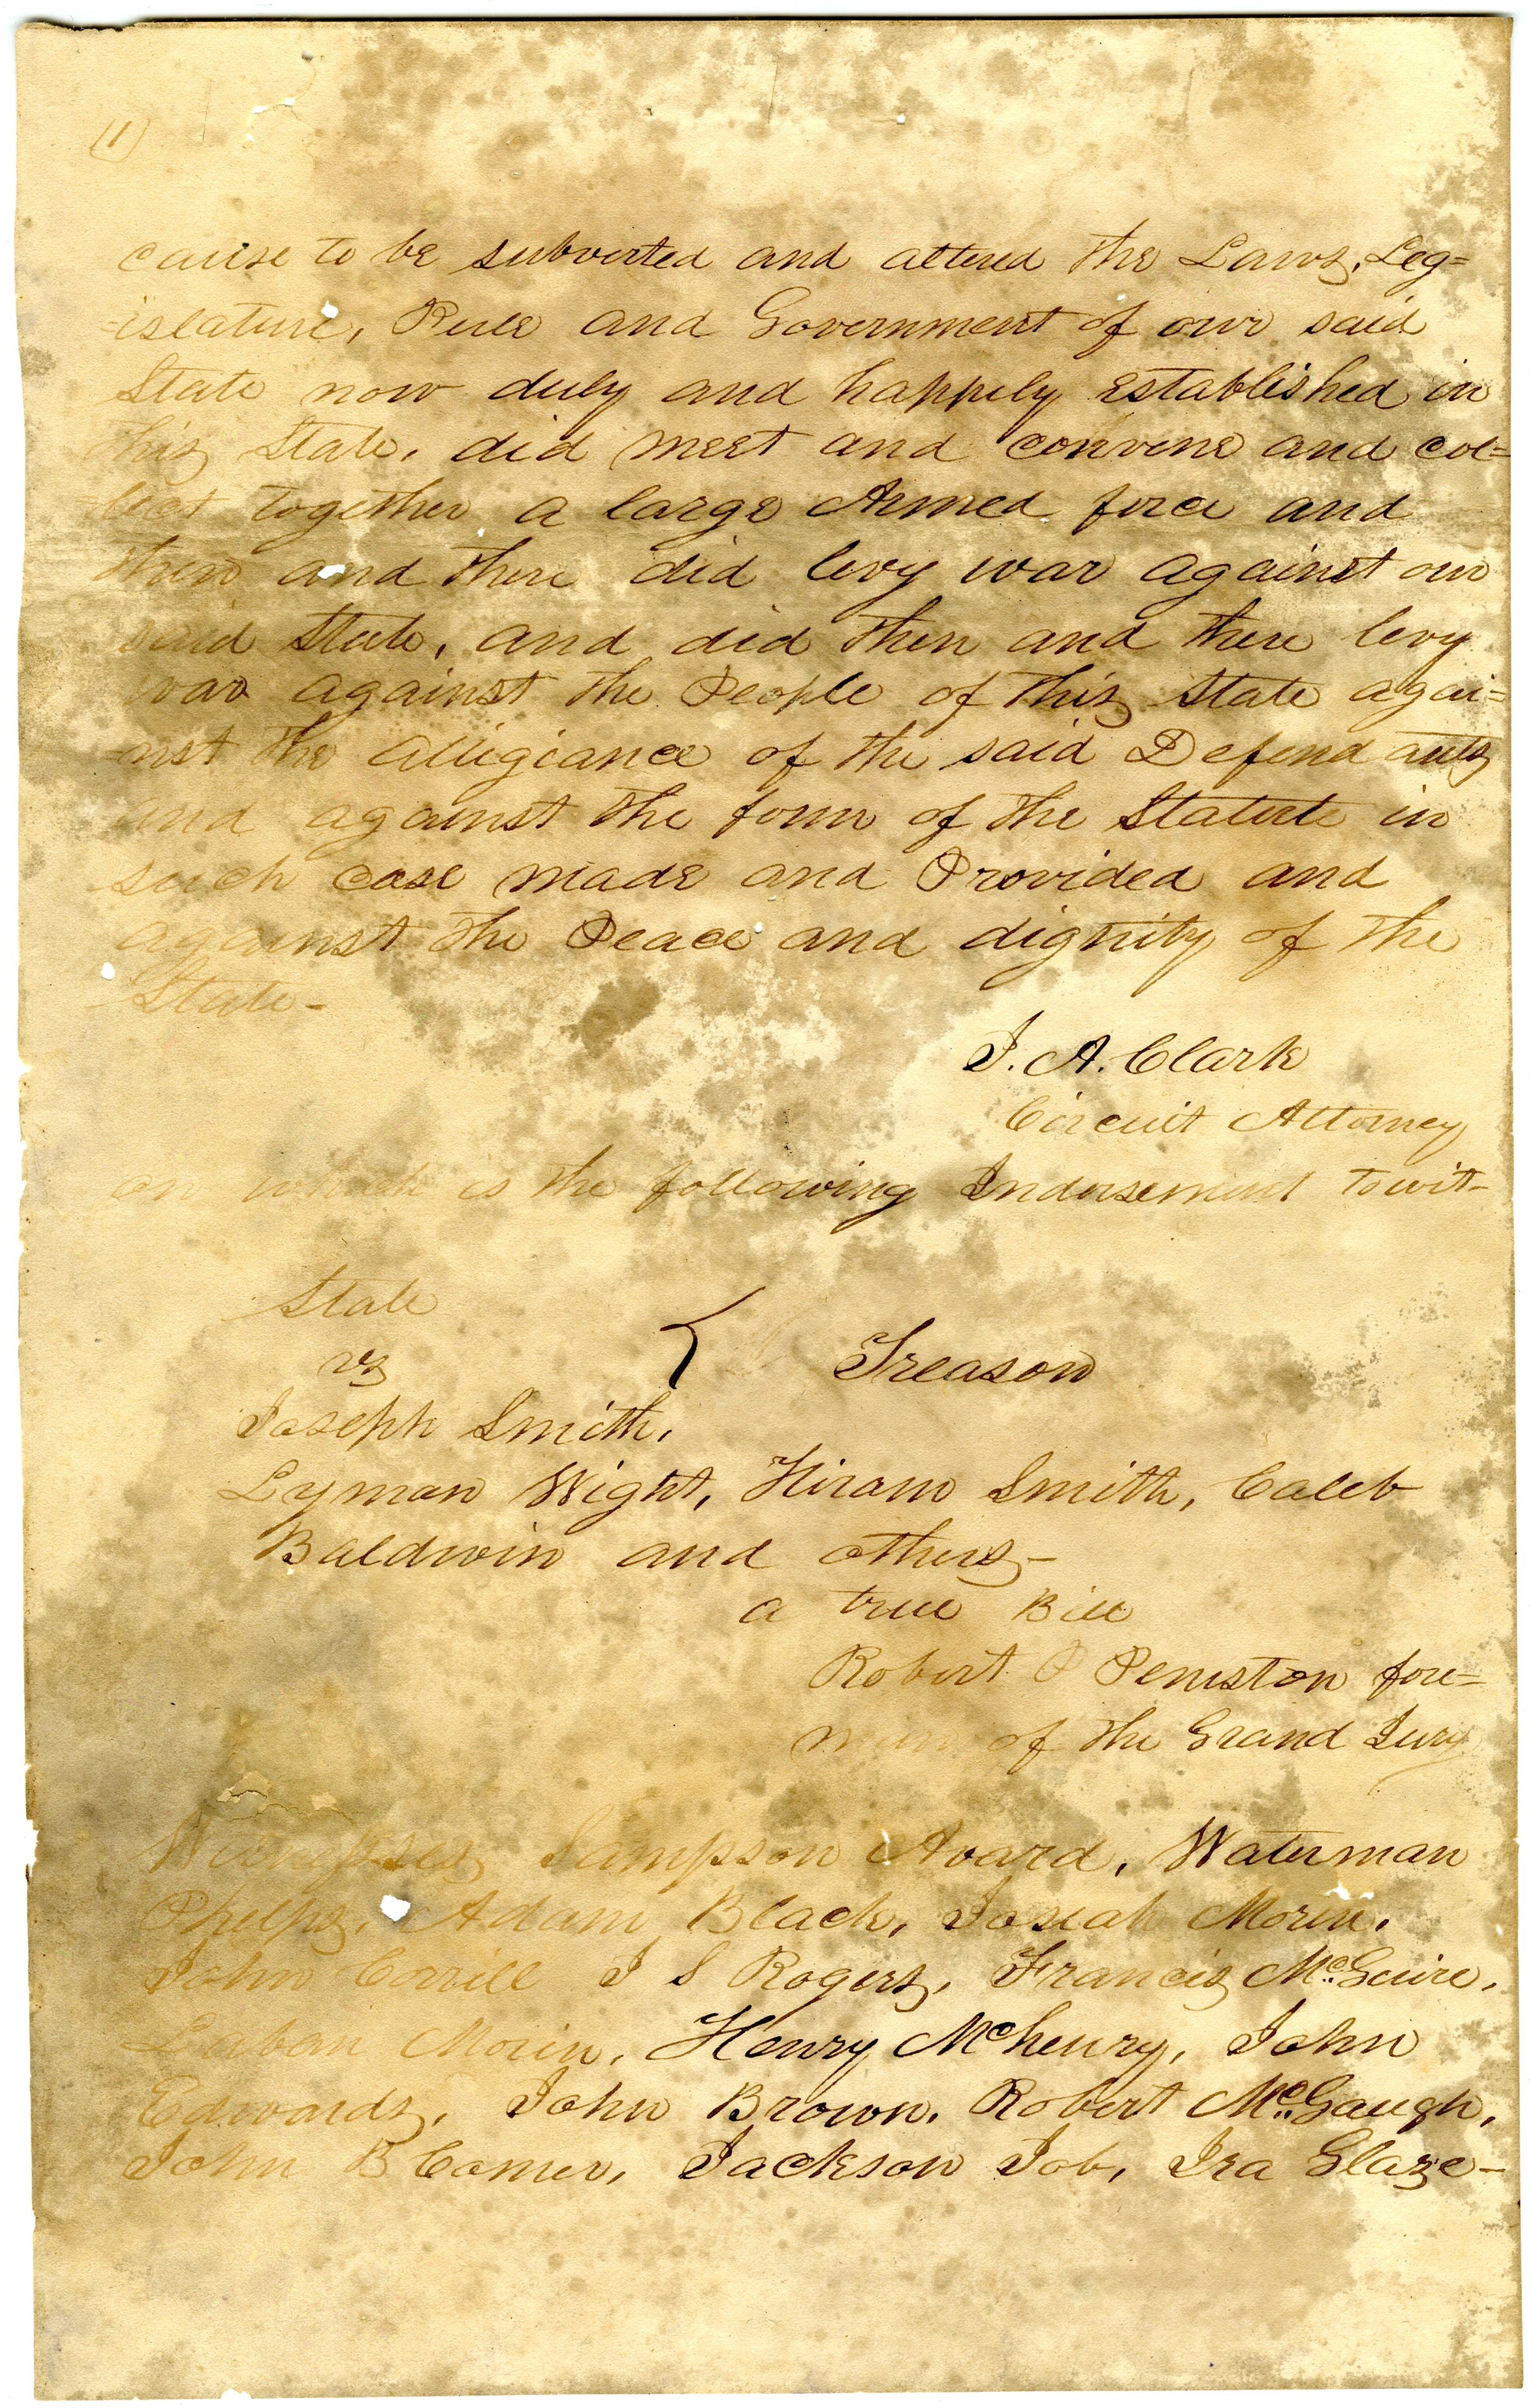 (1)
cause to be subverted and altered the Laws, Leg=
=islature, Rule and Government of our said
State now duly and happily established in
this State, did meet and convene and col=
=lect together a large Armed force and
then and there did levy war against our
said State, and did then and there levy
war against the People of this State agai=
=nst the allegiance of the said Defendants
and against the form of the Statute in
such case made and Provided and
against the Peace and dignity of the
State-
J. A. Clark
Circuit Attorney
on which is the following Indorsement towit-
State
vs
Treason
Joseph Smith,
Lyman Wight, Hiram Smith, Caleb
Baldwin and others-
a true Bill
Robert P Peniston fore=
man of the Grand Jury
Witnesses Sampson Avard, Waterman
Phelps, Adam Black, Josiah Morin,
John Corrill J S Rogers, Francis McGuire,
Laban Morin, Henry McHenry, John
Edwards, John Brown, Robert McGaugh,
John B Comer, Jackson Job, Ira Glaze-